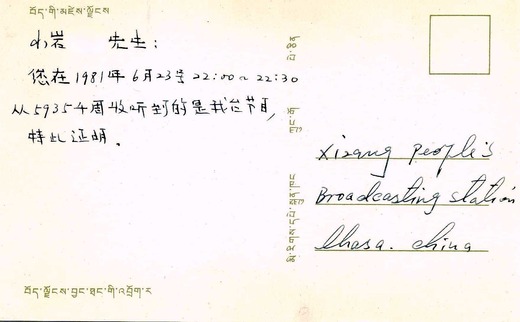 བོད་གི་མཛེས་ལྗོངས
小岩 先生:
您在1981年6月23号22:00~22:30
从5935千周收听到的是我台节目,
特此证明。
Xizang people's
Broadcasting station
lhasa. china
བོད་ལྗོངས་བྱང་ཐང་གི་འབྲོག་ར